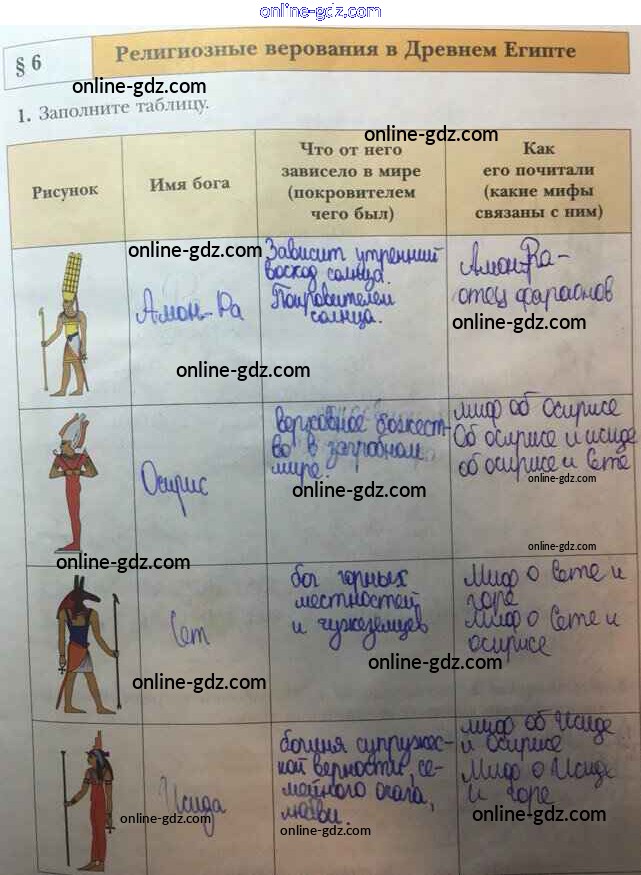 online-gdz.com
§ 6
Религиозные верования в Древнем Египте
online-gdz.com
1. Заполните таблицу.
online-gdz.com
Рисунок
Имя бога
Что от него
зависело в мире
(покровителем
чего был)
Как
его почитали
(какие мифы
связаны с ним)
online-gdz.com
Амон-Ра
Зависит утренний
восход солнца.
Покровителем
солнца.
Амон-Ра-
отец фараонов
online-gdz.com
online-gdz.com
Осирис
верховное божест-
во в загробном
мире.
миф об Осирисе
Об осирисе и исиде
об осирисе и Сете
online-gdz.com
online-gdz.com
online-gdz.com
online-gdz.com
Сет
бог горных
местностей
и чужеземцев
Миф о Сете и
горе
Миф о Сете и
осирисе
online-gdz.com
online-gdz.com
Исида
богиня супружес-
кой верности, се-
мейного очага,
любви.
миф об Исиде
и Осирисе
Миф о Исиде
и горе
online-gdz.com
online-gdz.com
online-gdz.com